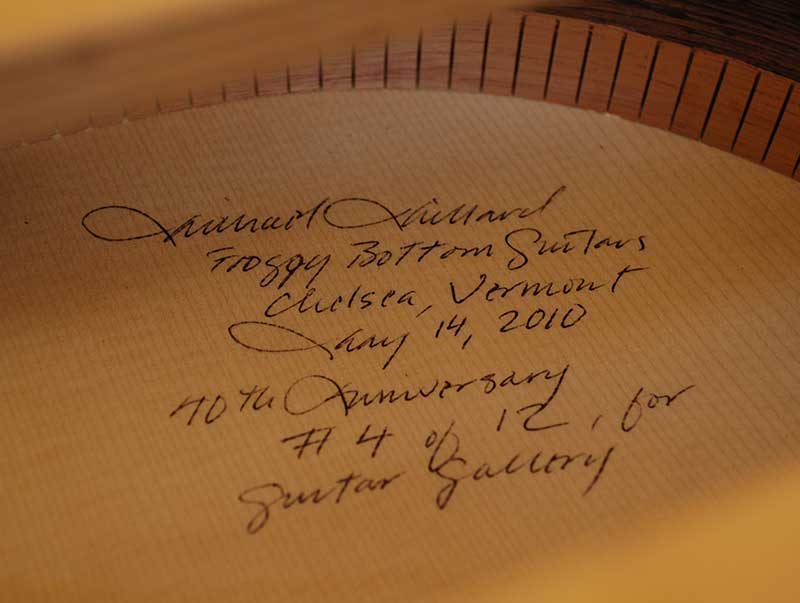 Michael Millard
Froggy Bottom Guitars
Chelsea, Vermont
May 14, 2010
40th Anniversary
# 4 of 12, for
Guitar Gallery